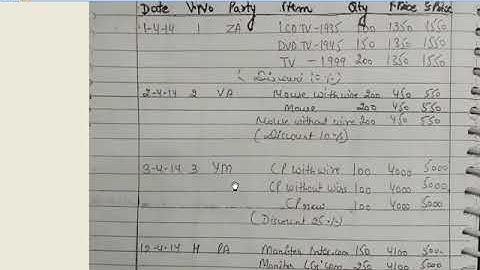 Date V.No Party Item Qty P.Price S.Price
1-4-14 1 ZA LCD TV-1935 100 1350 1550
DVD TV-1945 150 1350 1550
TV - 1999 200 1350 1550
(Discount
2-4-14 2 VA Mouse with wire 200 450 550
Mouse 200 450 550
Mouse without wire 200 450 550
(Discount 10%)
3-4-14 3 YM CP with wire 100 4000 5000
CP without wire 100 4000 5000
CP new 100 4000 5000
(Discount 25%)
12-4-14 PA Moniter 150 4100
Moniter 250 4100 5000